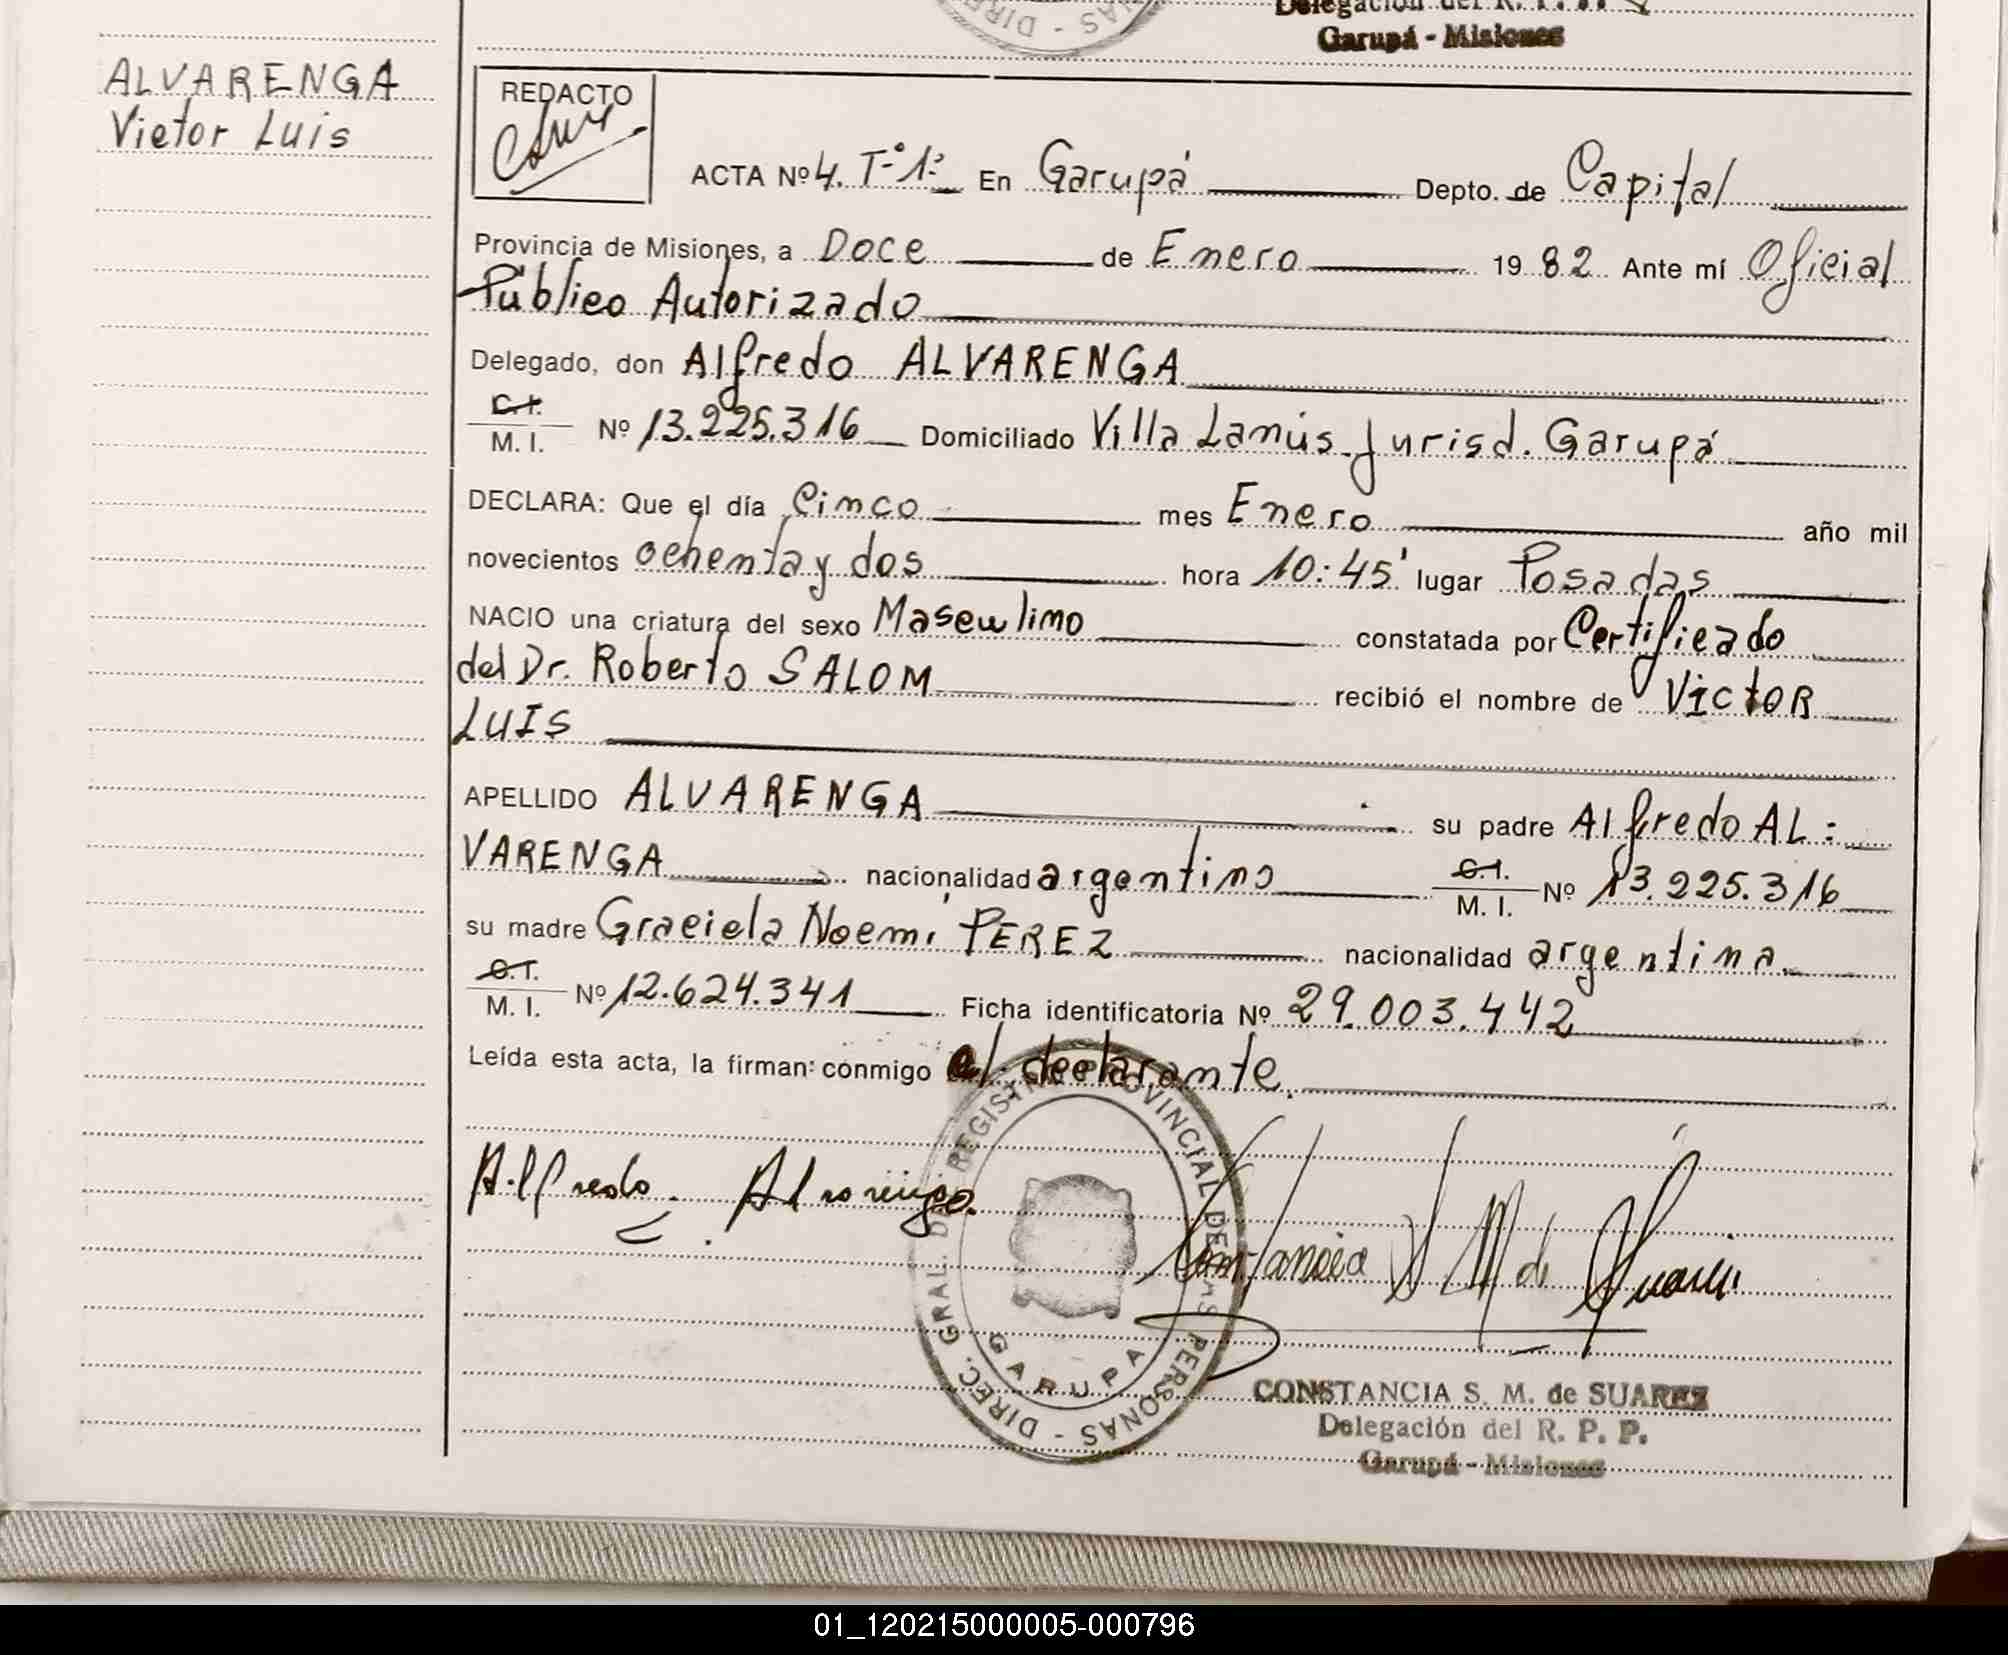 Delegación del R. P. P.
Garupá - Misiones
DIREC. - NAS
ALVARENGA
Victor Luis
REDACTO
ACTA Nº 4. Tº 1º En Garupá Depto. de Capital
Provincia de Misiones, a Doce de Enero 19 82 Ante mí Oficial
Público Autorizado
Delegado, don Alfredo ALVARENGA
C.I. / M. I. Nº 13.225.316 Domiciliado Villa Lanús. Jurisd. Garupá
DECLARA: Que el día Cinco mes Enero año mil
novecientos ochenta y dos hora 10:45' lugar Posadas
NACIO una criatura del sexo Masculino constatada por Certificado
del Dr. Roberto SALOM recibió el nombre de VICTOR
LUIS
APELLIDO ALVARENGA su padre Alfredo AL:
VARENGA nacionalidad argentino C.I. / M. I. Nº 13.225.316
su madre Graciela Noemí PEREZ nacionalidad argentina
C.I. / M. I. Nº 12.624.341 Ficha identificatoria Nº 29.003.442
Leída esta acta, la firman: conmigo el declarante.
Alfredo Alvarenga.
Constancia S M de Suarez
DIREC. GRAL. DEL REGISTRO PROVINCIAL DE LAS PERSONAS -
GARUPA
CONSTANCIA S. M. de SUAREZ
Delegación del R. P. P.
Garupá - Misiones
01_120215000005-000796